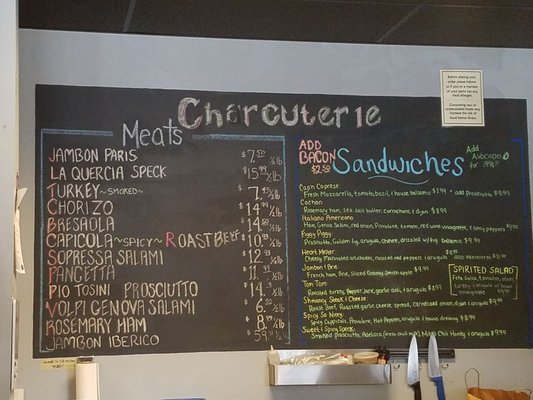 Charcuterie
Meats
JAMBON PARIS $7.50 ½lb
LA QUERCIA SPECK $15.99 ½lb
TURKEY ~SMOKED~ $7.
CHORIZO $14.
BRESAOLA $14.
CAPICOLA ~SPICY~ ROAST BEEF $10.
SOPRESSA SALAMI $12.
PANCETTA $11.
PIO TOSINI PROSCIUTTO $14.
VOLPI GENOVA SALAMI $6.
ROSEMARY HAM $8.
JAMBON IBERICO $59.
ADD
BACON
$2.50
Sandwiches
Add
AVOCADO
for .99¢!!
Capn Caprese
Fresh Mozzarella, tomato, basil, & house balsamic $7.99 - add Prosciutto $9.99
Cochon
Rosemary ham, sea salt butter, cornichons, & dijon $8.99
Italiano Americano
Ham, Genoa Salami, red onion, Provolone, tomato, red wine vinaigrette, & spicy peppers
Figgy Piggy
Prosciutto, Golden fig, arugula, chevre, drizzled w/fig balsamic $9.99
Heart Melter
roasted red peppers & arugula
ADD PROSCIUTTO $11.99
Jambon & Brie
French ham, Brie, sliced Granny Smith apple $9.99
Tom Tom
Roasted turkey, Pepper Jack, garlic aioli, & arugula $8.99
Shmancy Steak & Cheese
Roast Beef, Roasted garlic cheese spread, caramelized onion, dijon & arugula $9.99
Spicy So Nicey
Spicy Cappicola, Provolone, Hot Pepper, arugula & house dressing $8.99
Sweet & Spicy Speck
Smoked Prosciutto, Mike's Hot Honey & arugula $9.99
SPIRITED SALAD
Feta, Salami, tomato, olives,
turkey & arugula w/ house
vinaigrette
Before placing your
order please inform
us if you or a member
of your party has any
food allergies.
Consuming raw or
undercooked foods may
increase the risk of
food borne illness.